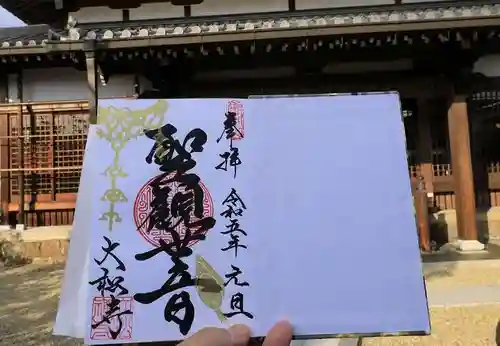 奉拝
令和五年元旦
聖観世音
大松寺